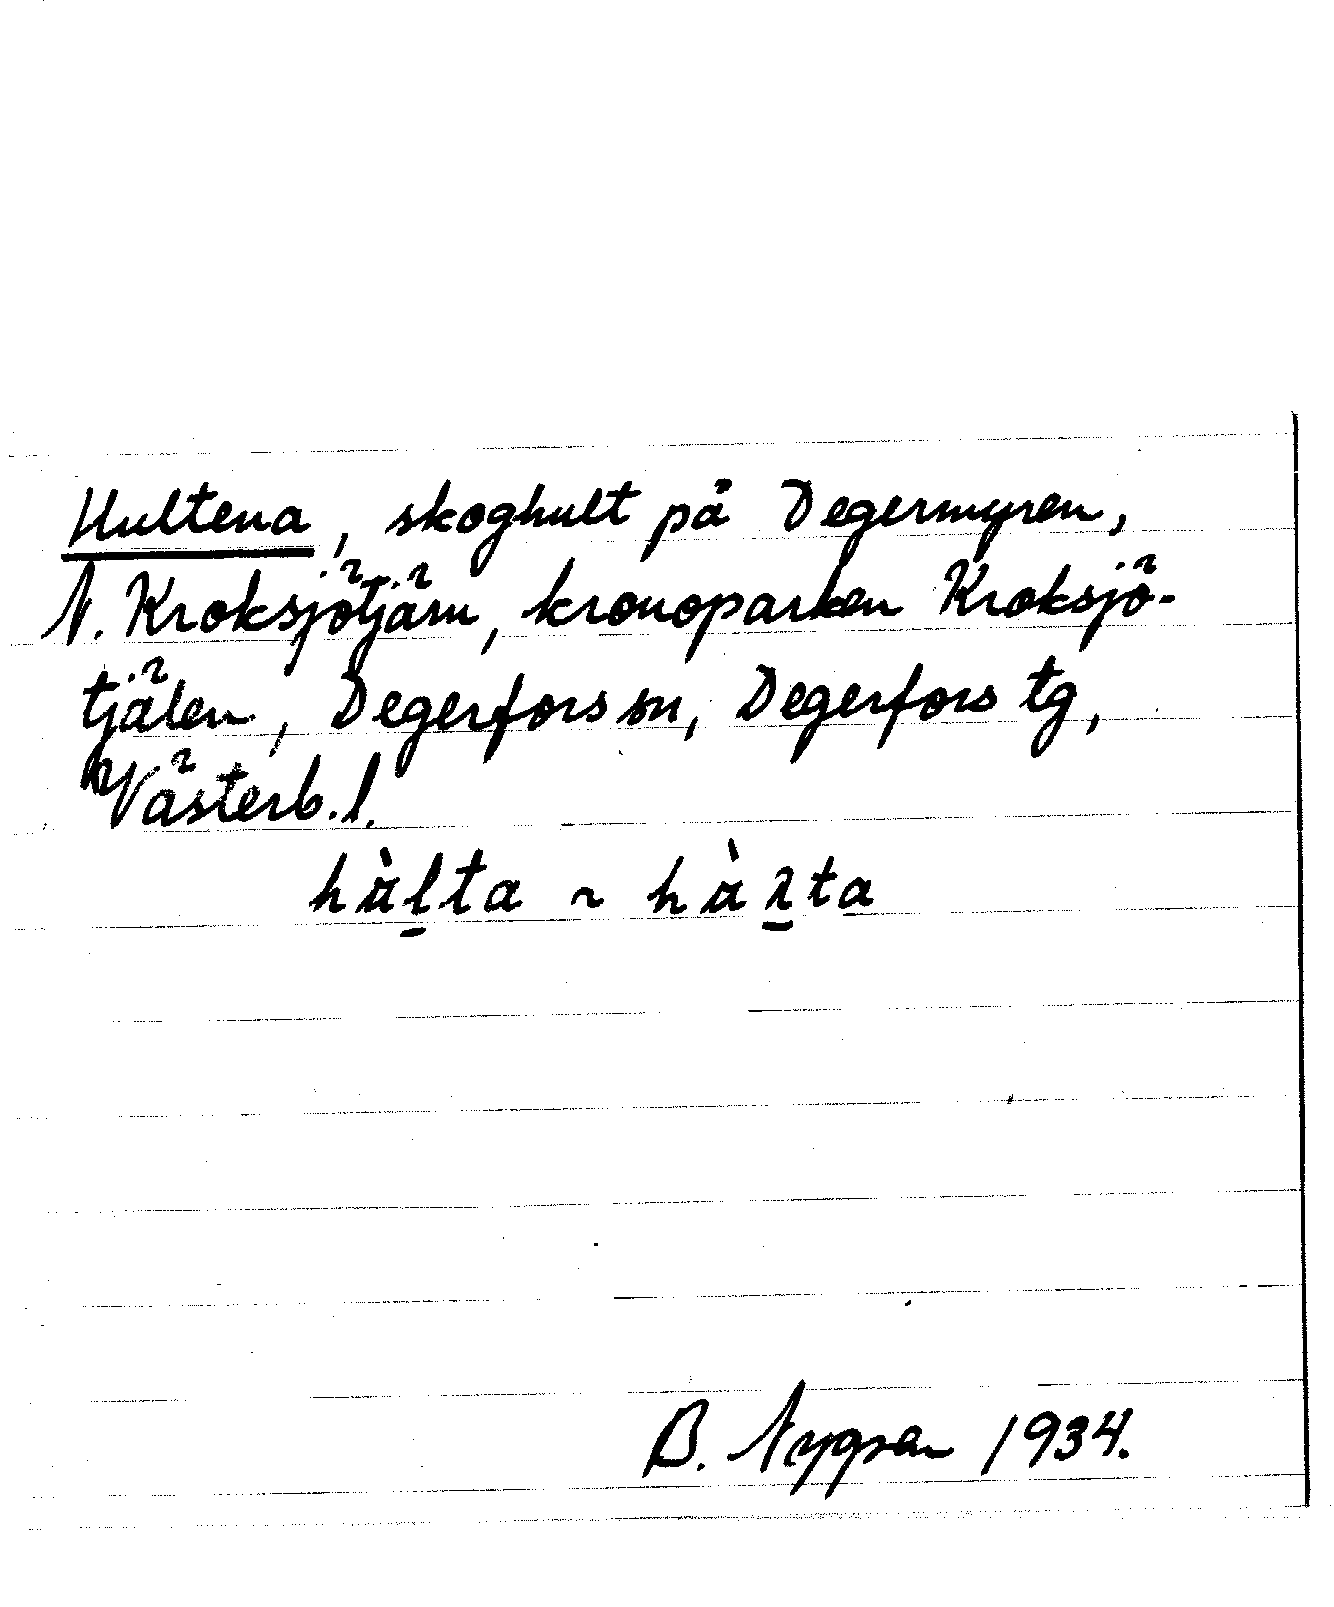 Hultena, skoghult på Degermyren,
N. Kroksjötjärn, kronoparken Kroksjö-
tjälen, Degerfors sn, Degerfors tg,
Västerb. l.
hὰl̠ta ~ hὰλ̠ta
B. Nygren 1934.